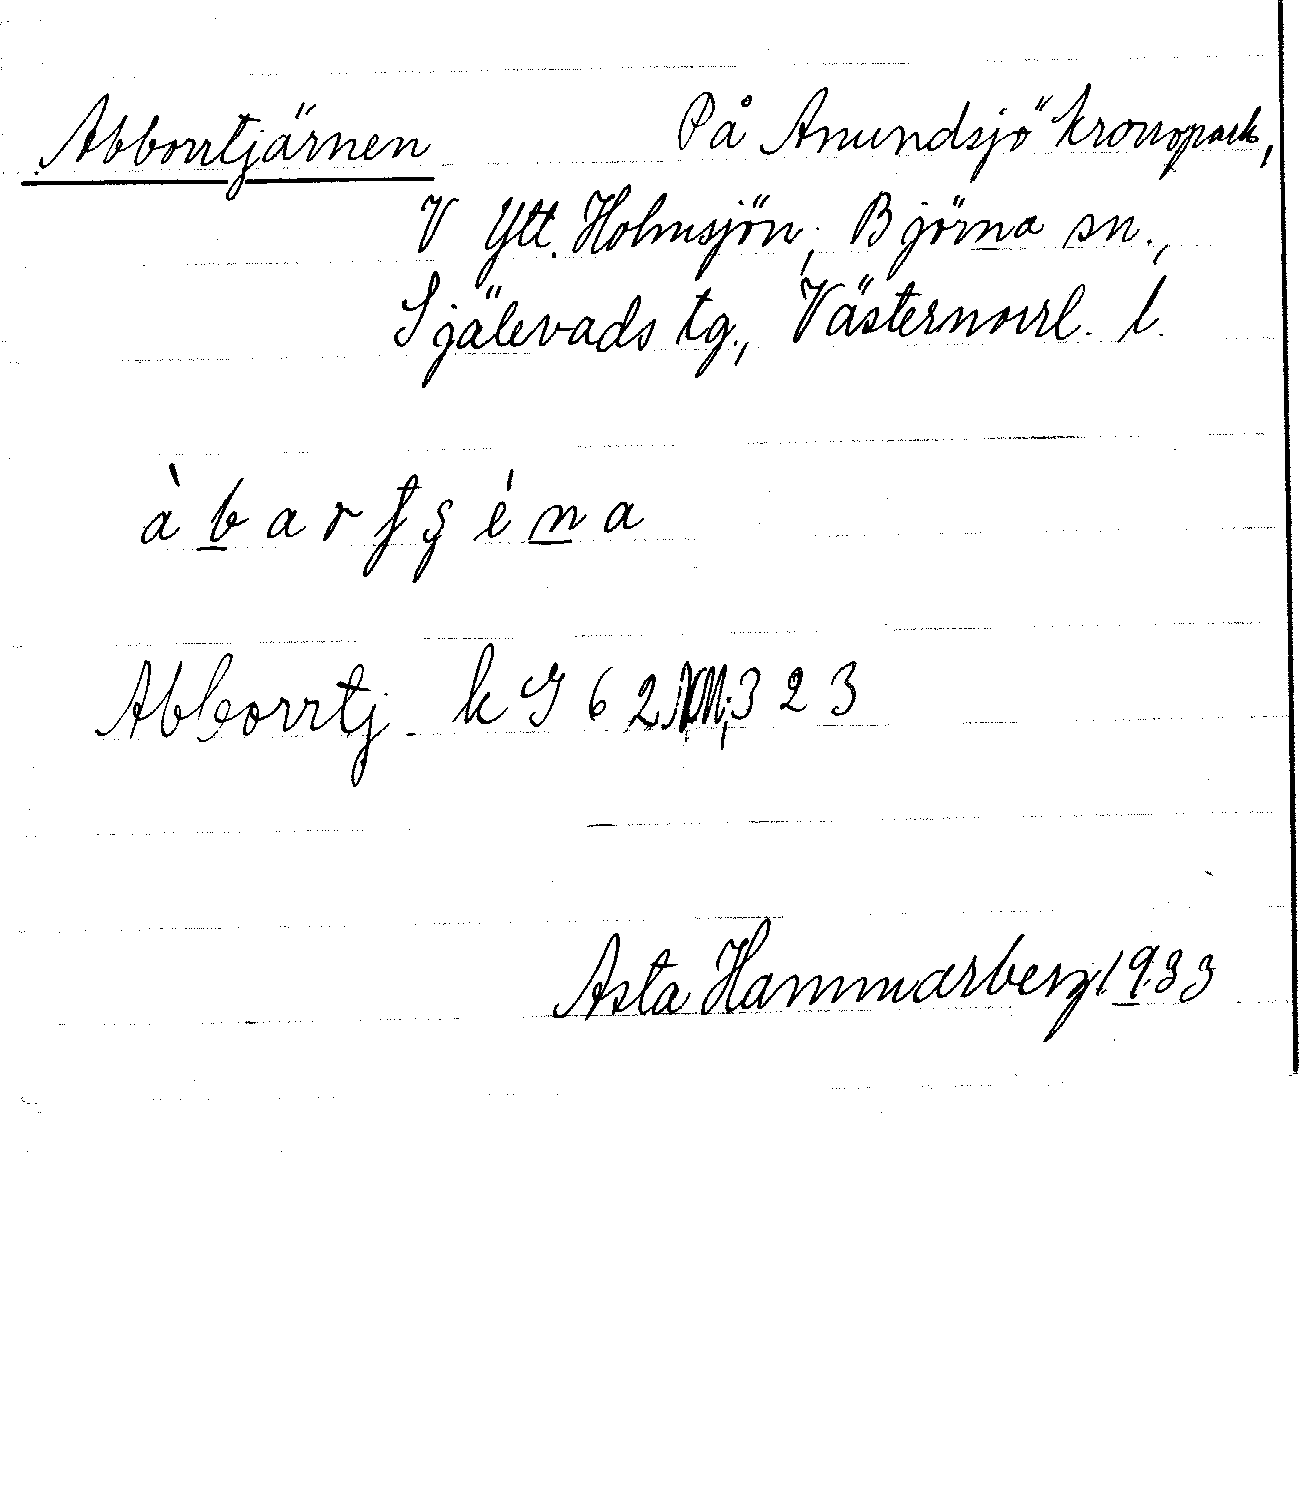 Abborrtjärnen På Anundsjö kronopark,
V Ytt. Holmsjön, Björna sn.,
Själevads tg., Västernorrl. l.
àbarţşéna
Abborrtj. k G 62 323
Asta Hammarberg 1933